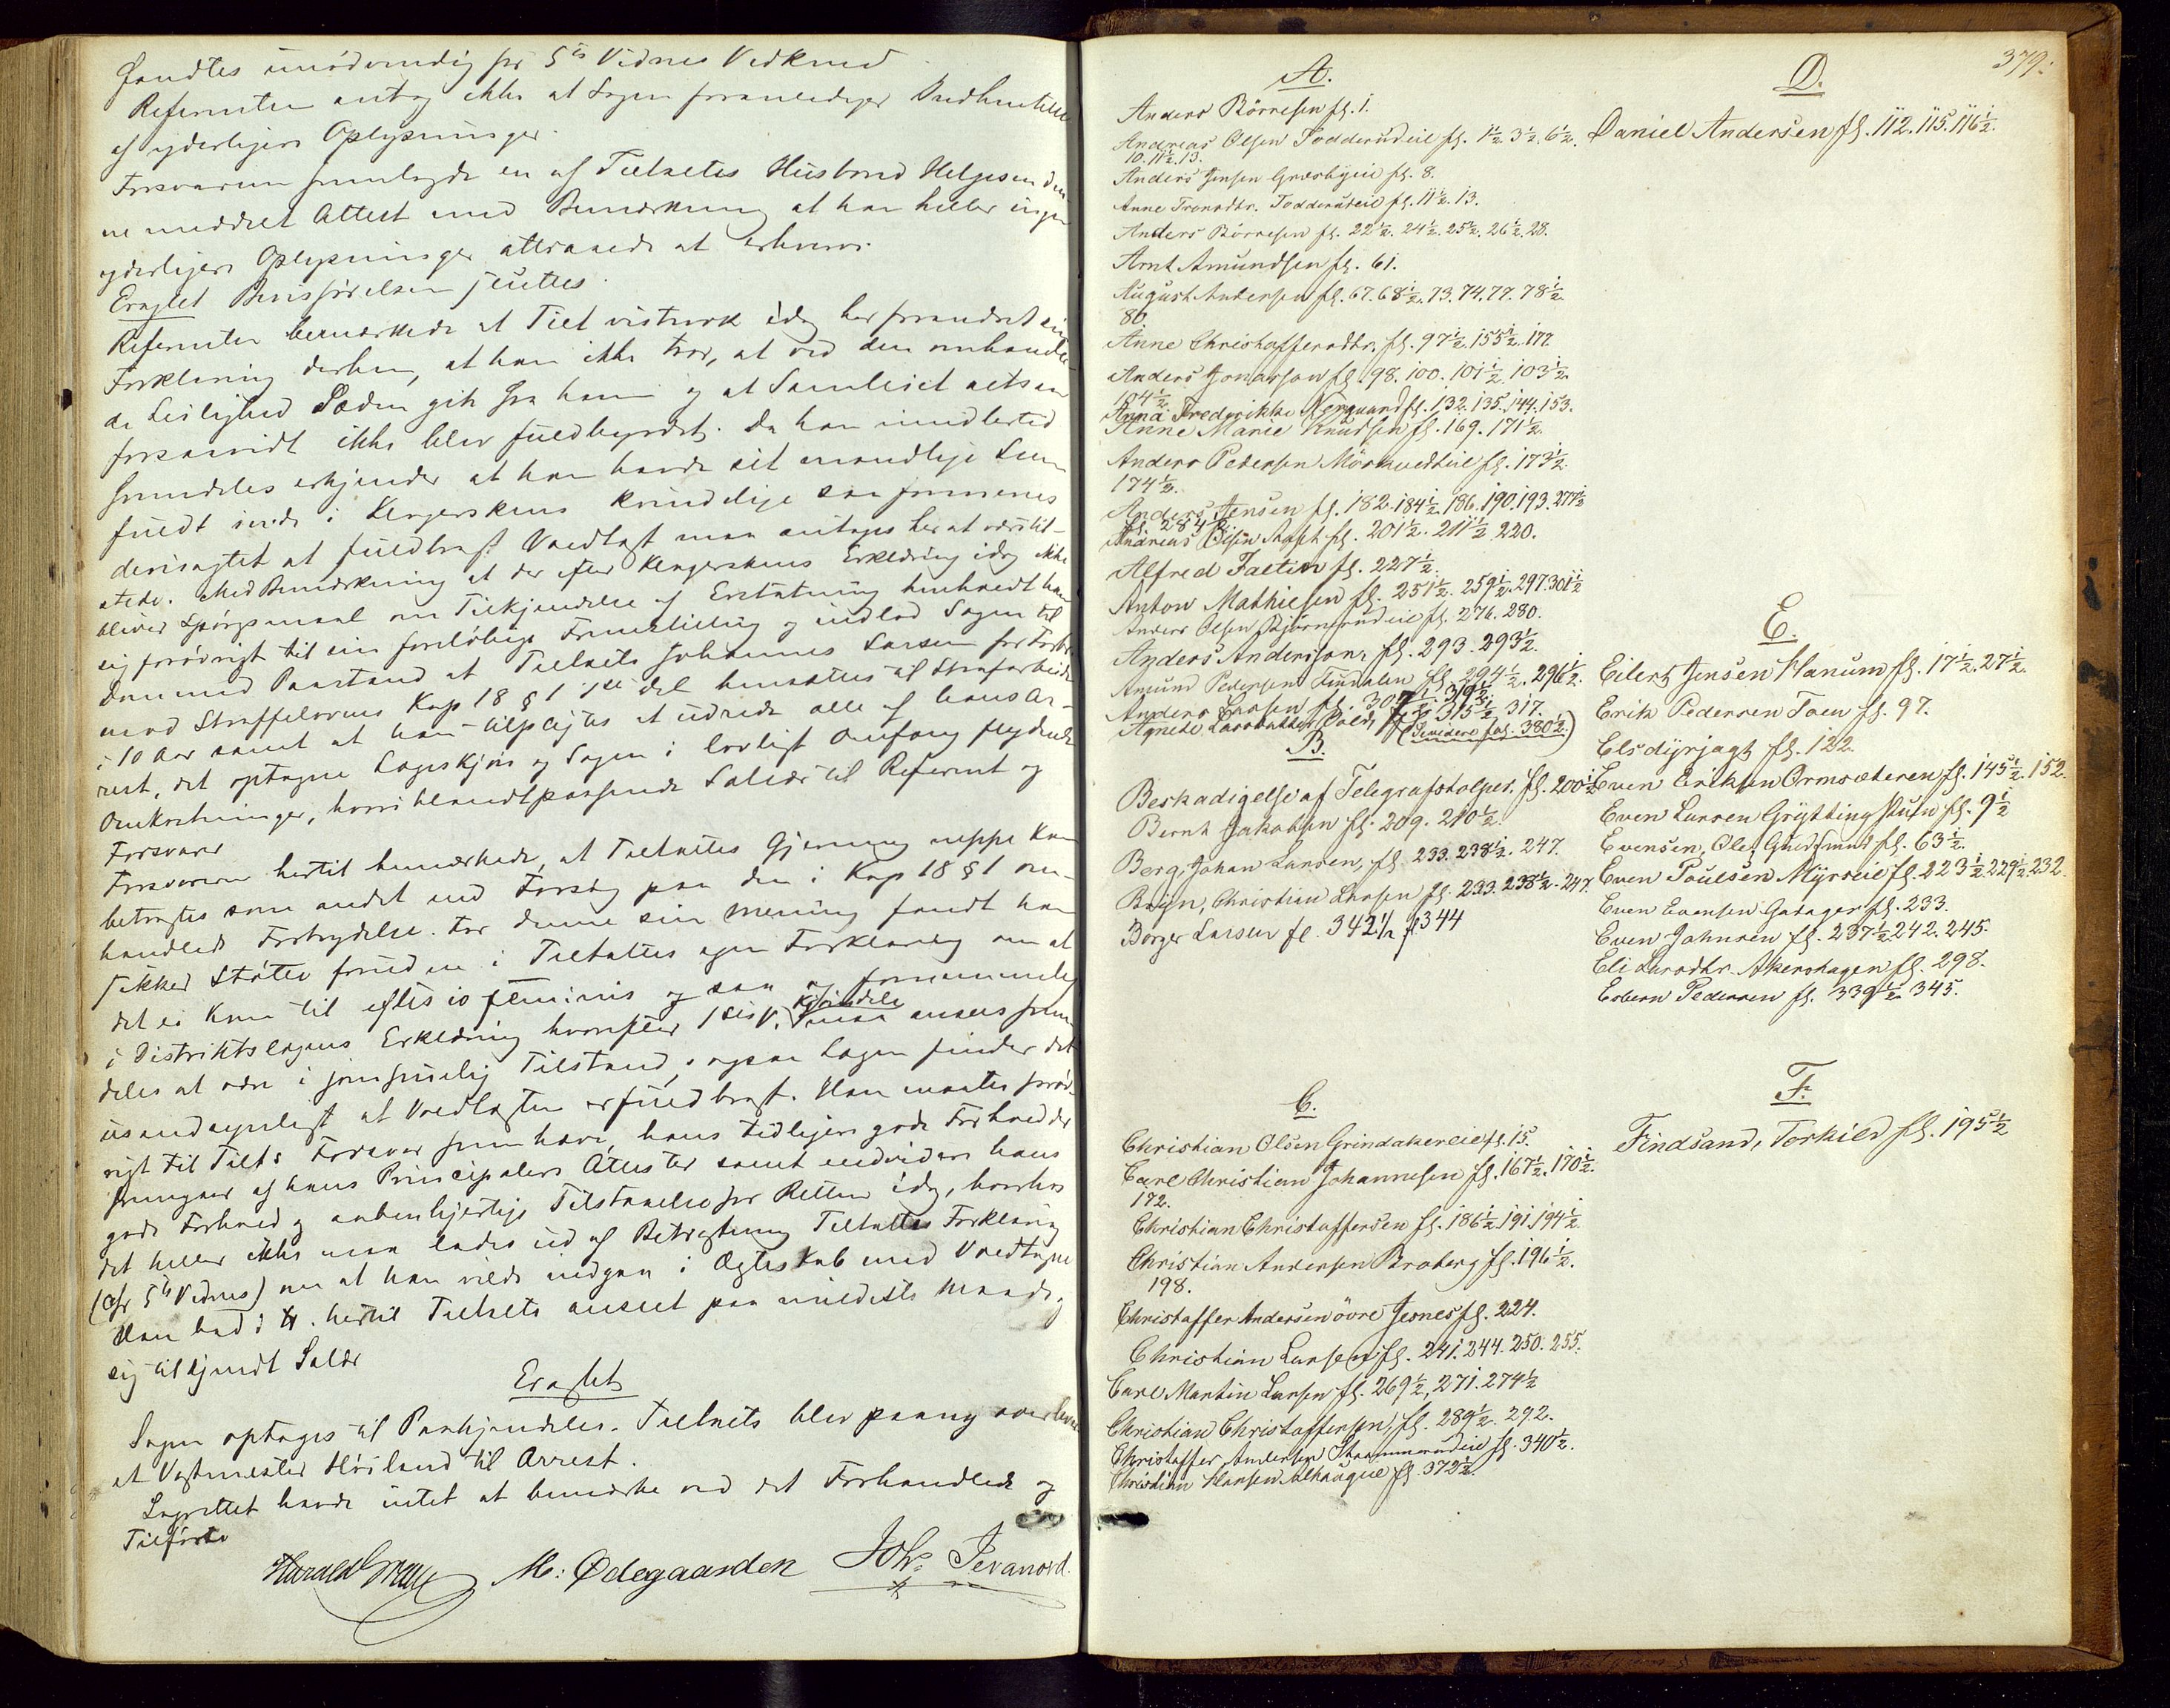 fandtes unødvendig for 5te Vidnes Vedkmd.
Referenten antog ikke at Sagen foranlediger Indhentelse
af yderligere Oplysninger.
Forsvareren fremlagde en af Tiltaltes Husbond Helgesen den-
ne meddelt Attest med Bemærkning at han heller ingen
yderligere Oplysninger attraaede at erhverve.
Eragtet Bevisførelsen sluttes.
Referenten bemærkede at Tilt vistnok idag har forandret sin
Forklaring derhen, at han ikke tror, at ved den omhandle-
de Leilighed Sæden gik fra ham og at Samleiet altsaa
forsaavidt ikke blev fuldbyrdet. Da han imidlertid
fremdeles erkjender at han havde sit mandlige Lem
fuldt inde i Klagerskens kvindelige saa formenes
desuagtet at fuldbragt Voldtægt maa antages her at være til-
stede. Med Bemærkning at der efter Klagerskens Erklæring idag ikke
bliver Spørgsmaal om Tilkjendelse af Erstatning henholdt han
sig forøvrigt til sin foreløbige Fremstilling og indlod Sagen til
Dom med Paastand at Tiltalte Johannes Larsen for Forbr
mod Straffelovens Kap 18 § 1 1ste Del hensættes til Strafarbeide
i 10 Aar samt at han tilpligtes at udrede alle af hans Ar-
rest, det optagne Lageskjøn og Sagen i lovligt Omfang flydende
Omkostninger, hvoriblandt passende Salær til Referent og
Forsvarer
Forsvareren hertil bemærkede, at Tiltaltes Gjerning neppe kan
betragtes som andet end Forsøg paa den i Kap 18 § 1 om-
handlede Forbrydelse. For denne sin Mening fandt han
sikker Støtte foruden i Tiltaltes egen Forklaring om at
det ei kom til effusio seminis og saa og fornemmelig
i Distriktslægens Erklæring hvorefter maa ansees frem-
deles at være i jomfruelig Tilstand, ogsaa Lægen finder det
usandsynligt at Voldtægten er fuldbragt. Han maatte forøv-
rigt til Tilts Forsvar fremhæve, hans tidligere gode Forholdder
fremgaar af hans Principalers Attester samt endvidere hans
gode Forhold og aabenhjertige Tilstaaelse for Retten idag, hvorhos
det heller ikke maa lades ud af Betragtning Tiltaltes Forklaring
(Cfr 5te Vidnes) om at han vilde indgaa i Ægteskab med Voldtagne
Han bad i H. hertil Tiltalte anseet paa mildeste Maade,
sig tilkjendt Salær
Eragtet
Sagen optages til Paakjendelse. Tiltalte blev paany overleve-
ret Vagtmester Høiland til Arrest.
Lagrettet havde intet at bemærke ved det Forhandlede og
Tilførte
M: Ødegaarden Johs Jevanord.
379.
A.
Anders Börresen fl. 1.
Andreas Olsen Todderudeie fl. 1½ 3½. 6½.
10. 11½. 13.
Anders Jensen Græsbyeie fl. 8.
Anne Tronsdtr. Todderudeie fl. 11½. 13.
Anders Börresen fl. 22½. 24½. 25½. 26½. 28.
Arnt Amundsen fl. 61.
August Andersen fl. 67. 68½. 73. 74. 77. 78½.
80.
Anne Christoffersdtr. fl. 97½. 155½. 177.
Anders Jonasson fl. 98. 100. 101½. 103½.
104½.
Anna Fredrikke fl. 132. 135. 144. 153.
Anne Marie Knudsen fl. 169. 171½.
Anders Pedersen Mörkvedeie fl. 173½.
174½.
Anders Jensen fl. 182. 184½. 186. 190. 193. 277½
fl. 284½
Andreas Olsen fl. 201½. 211½ 220.
Alfred Faltin fl. 227½.
Anton Mathiesen fl. 251½. 259½. 297 301½
Anders Olsen Björnerudeie fl. 276. 280.
Anders Andersson fl. 293. 293½.
Amund Pedersen fl. 294½. 296½.
Anders Larsen fl. 307½ 319½.
Agnete Larsdatter fl. 315½. 317.
(Se videre fol. 380½.)
B.
Beskadigelse af Telegrafstolper. fl. 200½
Bernt Jakobsen fl. 209. 210½.
Berg, Johan Larsen, fl. 233. 238½. 247.
Bryn, Christian Larsen fl. 233. 238½. 247.
Borger Larsen fl. 342½ fl 344
C.
Christian Olsen Grindakereie fl. 15.
Carl Christian Johannesen fl. 167½. 170½.
172.
Christian Christoffersen fl. 186½ 191. 194½.
Christian Andersen Broberg fl. 196½.
198.
Christoffer Andersen övre Jesnes fl. 224.
Christian Larsen fl. 241. 244. 250. 255.
Carl Martin Larsen fl. 269½, 271. 274½
Christian Christoffersen, fl. 289½. 292.
Christoffer Andersen fl. 340½.
Christian Hansen fl. 372½.
D.
Daniel Andersen fl. 112. 115. 116½.
E.
Eilert Jensen Hanum fl. 17½. 27½.
Erik Pedersen Toen fl. 97.
Elsdyrjagt fl. 122.
Even Eriksen Ormsæteren fl. 145½. 152.
Even Larsen Gryttingstuen fl. 9½
Evensen, Ole, fl. 63½.
Even Poulsen Myrseie fl. 223½ 229½ 232.
Even Evensen Gatager fl. 233.
Even Johnsen fl. 237½ 242. 245.
Eli Larsdtr. Akershagen fl. 298.
Esbern Pedersen fl. 339½ 345.
F.
Findsand, Torkild fl. 195½